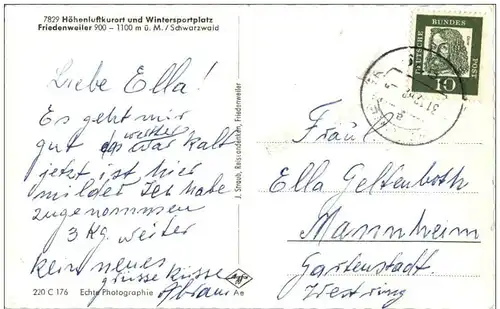 7829 Höhenluftkurort und Wintersportplatz
Friedenweiler 900 – 1100 m ü. M. / Schwarzwald
Liebe Ella!
Es geht mir
gut wetter war kalt
jetzt ist hier
milder Ich habe
zugenommen
3 Kg. weiter
kein neues
grüsse küsse
Abram
220 C 176 Echte Photographie Ae
J. Straub, Reiseandenken, Friedenweiler
DEUTSCHE BUNDESPOST
10
Fräul.
Ella Geltenboth
Mannheim
Gartenstadt
Westring